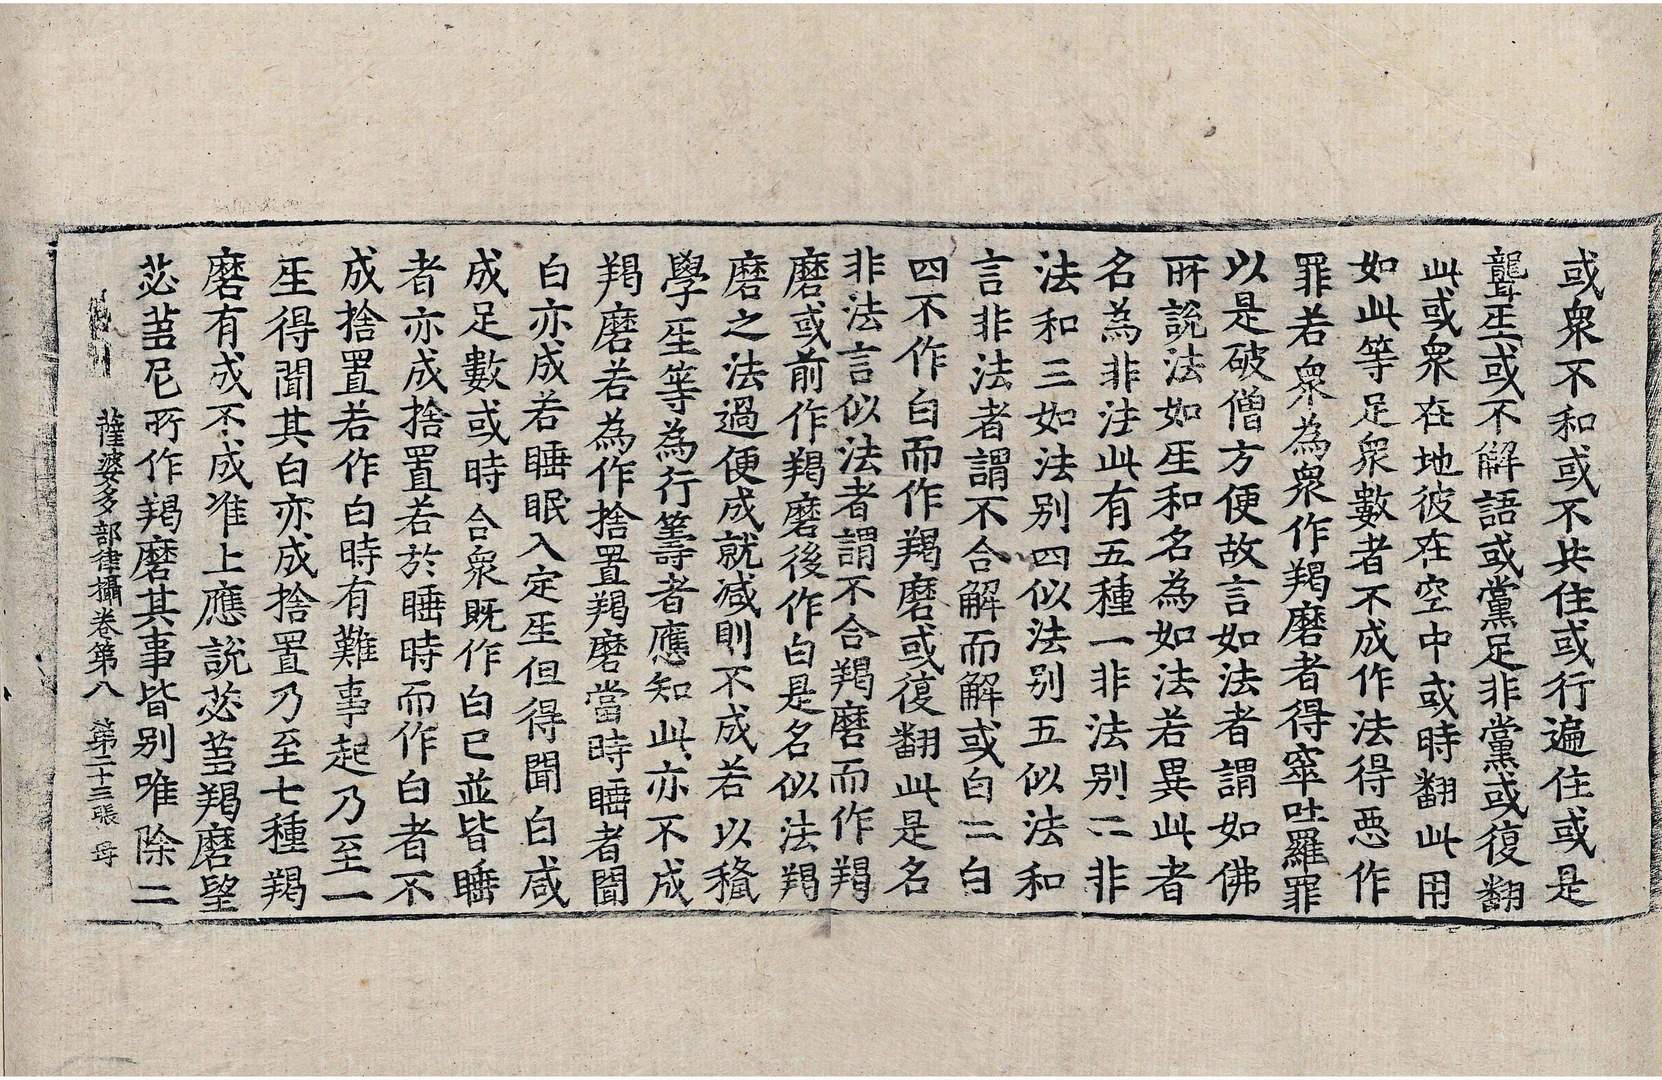 或衆不和或不共住或行遍住或是
聾𤯔或不解語或黨足非黨或復翻
此或衆在地彼在空中或時翻此用
如此等足衆數者不成作法得悪作
罪若衆為衆作羯磨者得窣吐羅罪
以是破僧方便故言如法者謂如佛
所說法如𤯔和名為如法若異此者
名為非法此有五種一非法別二非
法和三如法別四似法別五似法和
言非法者謂不合解而解或白二白
四不作白而作羯磨或復翻此是名
非法言似法者謂不合羯磨而作羯
磨或前作羯磨後作白是名似法羯
磨之法過便成就減則不成若以穳
學𤯔等為行籌者應知此亦不成
羯磨若為作捨置羯磨當時睡者聞
白亦成若睡眠入定𤯔但得聞白咸
成足數或時合衆既作白已並皆睡
者亦成捨置若於睡時而作白者不
成捨置若作白時有難事起乃至一
𤯔得聞其白亦成捨置乃至七種羯
磨有成不成准上應說苾芻羯磨望
苾芻尼所作羯磨其事皆別唯除二
薩婆多部律攝卷第八 第二十三張 毋